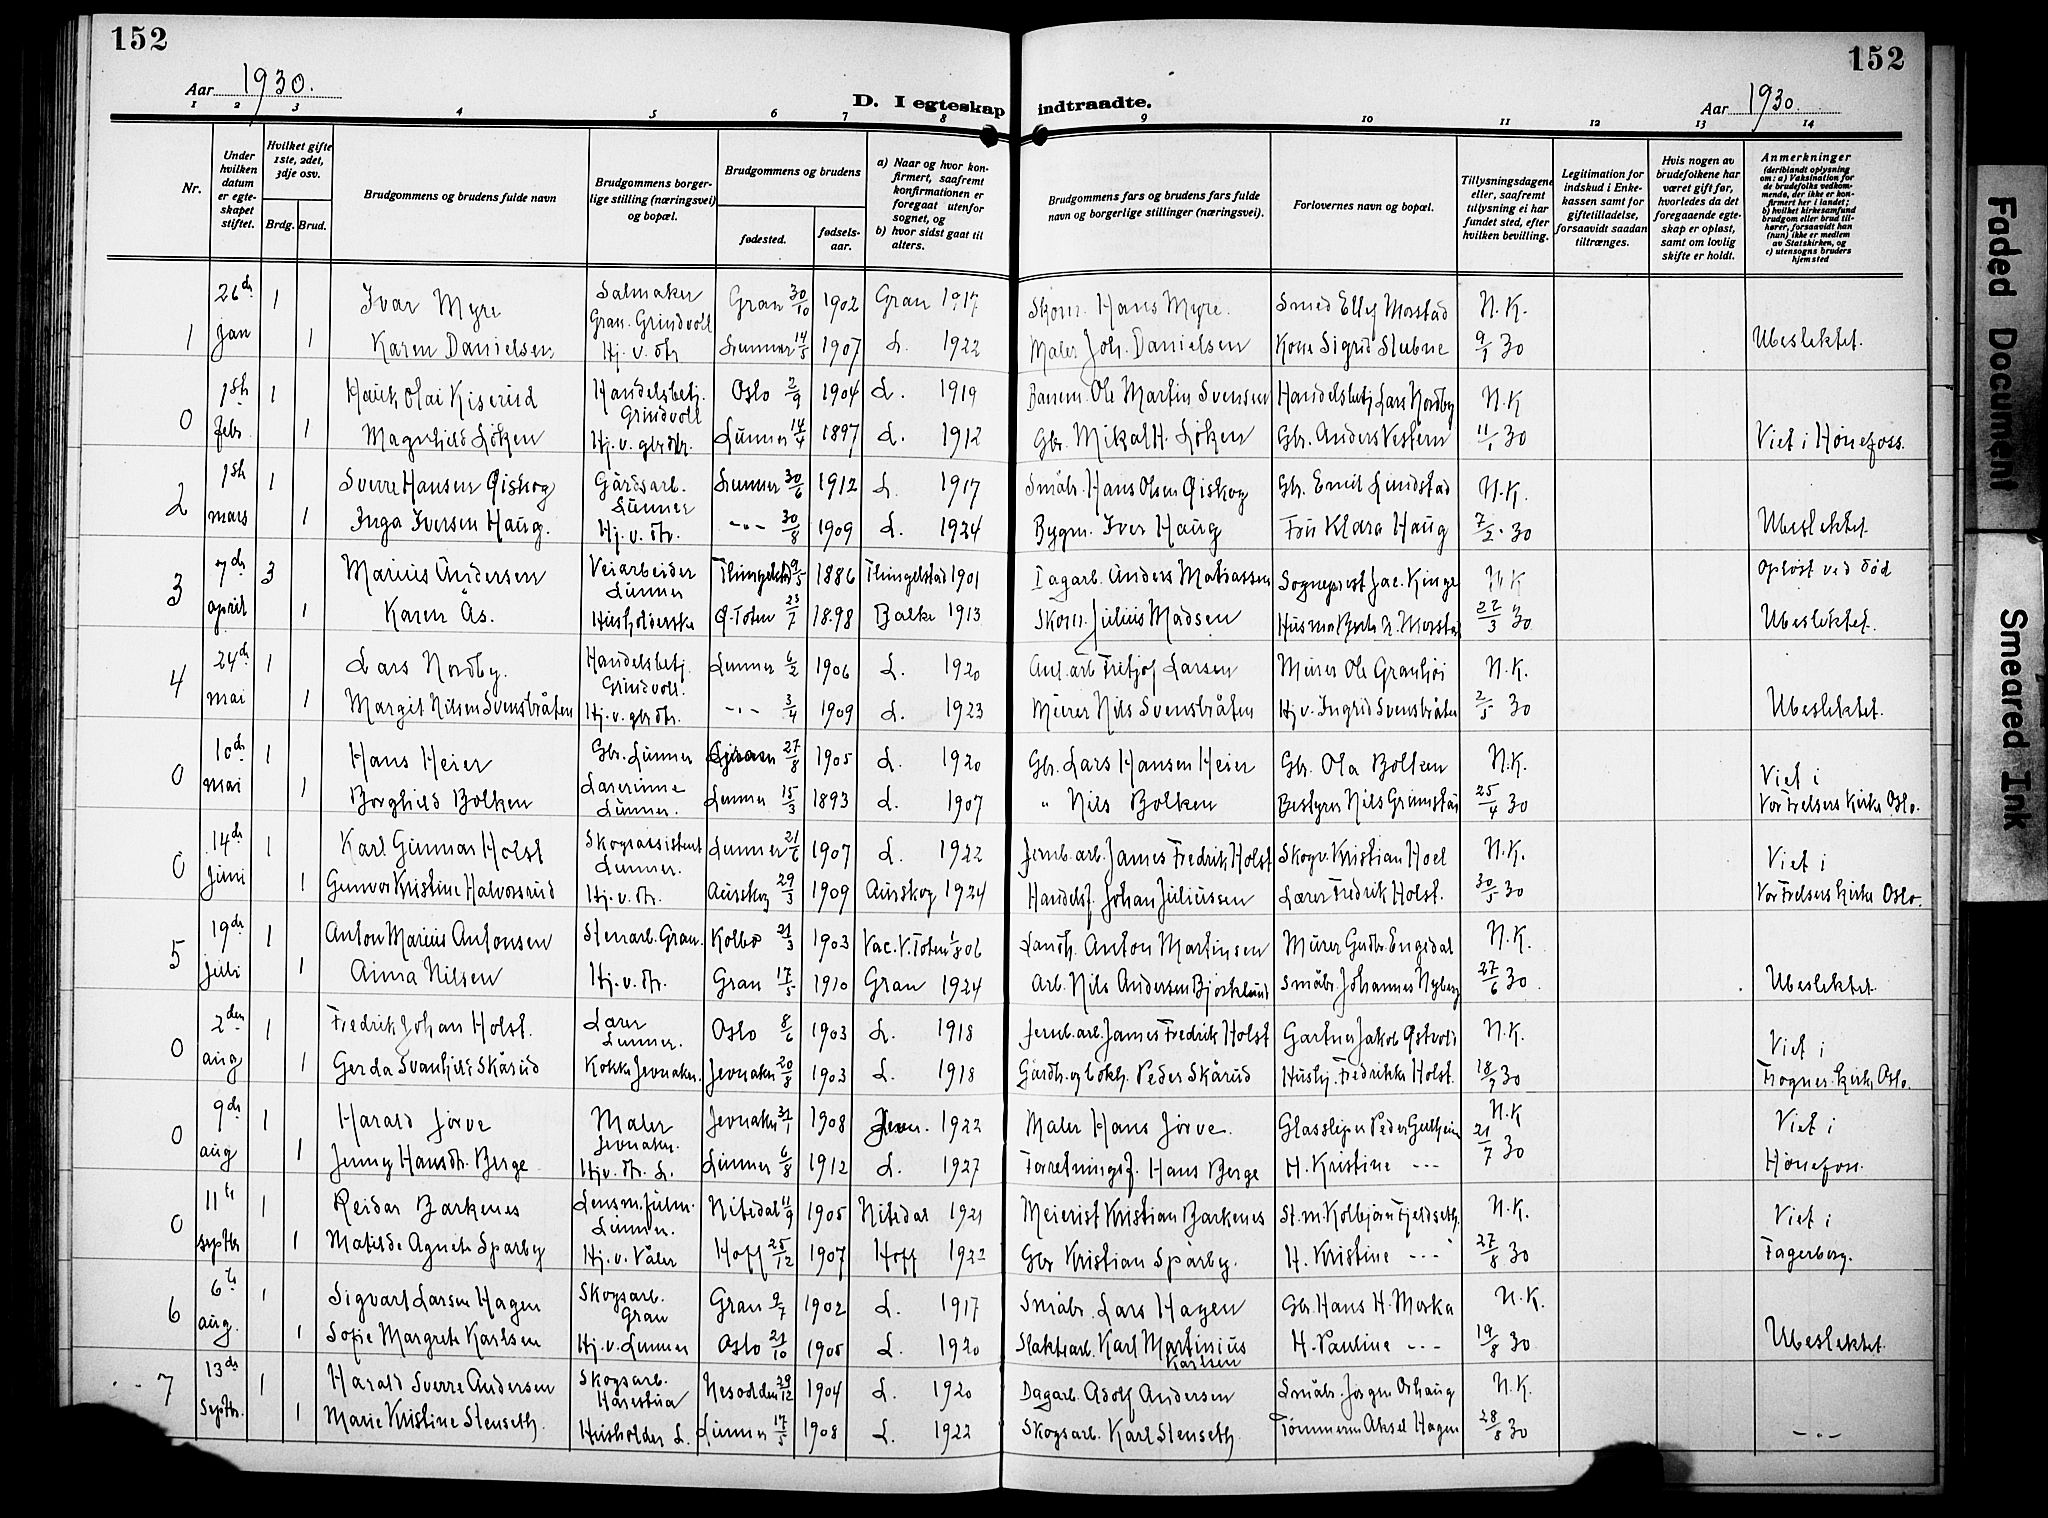 152
152
Aar 1930.
D. I egteskap indtraadte.
Aar 1930.
1 2 3 4 5 6 7 8 9 10 11 12 13 14
Nr.
Under hvilken datum er egteskapet stiftet.
Hvilket gifte 1ste, 2det, 3dje osv.
Brdg. Brud.
Brudgommens og brudens fulde navn
Brudgommens borgerlige stilling (næringsvei) og bopæl.
Brudgommens og brudens
fødested.
fødselsaar.
a) Naar og hvor konfirmert, saafremt konfirmationen er foregaat utenfor sognet, og
b) hvor sidst gaat til alters.
Brudgommens fars og brudens fars fulde navn og borgerlige stillinger (næringsvei).
Forlovernes navn og bopæl.
Tillysningsdagene eller, saafremt tillysning ei har fundet sted, efter hvilken bevilling.
Legitimation for indskud i Enkekassen samt for giftetilladelse, forsaavidt saadan tiltrænges.
Hvis nogen av brudefolkene har været gift før, hvorledes da det foregaaende egteskap er opløst, samt om lovlig skifte er holdt.
Anmerkninger
(deriblandt oplysning om: a) Vaksination for de brudefolks vedkommende, der ikke er konfirmert her i landet; b) hvilket kirkesamfund brudgom eller brud tilhører, forsaavidt han (hun) ikke er medlem av Statskirken, og c) utensogns bruders hjemsted
26de 1 Ivar Myre Salmaker Gran. Grindvoll Gran 30/10 1902 Gran 1917 Skom. Hans Myre. Smed Ellef Morstad N.K.
1 jan 1 Karen Danielsen Hj. v. dtr Lunner 14/5 1907 L. 1922 Maler Joh. Danielsen Kone Sigrid Stubne 9/1 30 Ubeslektet.
1ste 1 Olai Kiserud Handelsbetj. Grindvoll Oslo 2/9 1904 L. 1919 Banem. Ole Martin Svensen Handelsbetj Lars Nordby N.K
0 febr. 1 Magnhild Løken Hj. v. gbr.dtr. Lunner 14/4 1897 L. 1912 Gbr. Mikal H. Løken Gbr. Anders Vestern 11/1 30 Viet i Hønefoss.
1ste 1 Sverre Hansen Øiskog Gårdsarb. Lunner Lunner 30/6 1912 L. 1917 Småbr. Hans Olsen Øiskog Gbr. Emil Lundstad N.K.
2 mars 1 Inga Iversen Haug. Hj. v. dtr. -"- 30/8 1909 L. 1924 Bygm. Iver Haug Fru Klara Haug 7/2. 30 Ubeslektet
7de 3 Marius Andersen Veiarbeider Lunner Thingelstad 9/5 1886 Thingelstad 1901 Dagarb. Anders Matiassen Sogneprest Jac. Kinge N K opløst ved död
3 april 1 Karen Ås. Husholderske Ø. Toten 23/7 1898 Balke 1913 Skom. Julius Madsen 22/3 30 Ubeslektet.
24de 1 Lars Nordby. Handelsbetj. Grindvoll. Lunner 6/2 1906 L. 1920 Anl. arb Fritjof Larsen Murer Ole Granhøi N.K.
4 mai 1 Margit Nilsen Svensbråten Hj. v. gbr dtr. -"- 3/4 1909 L. 1923 Murer Nils Svensbråten Hj. v. Ingrid Svensbråten 2/5 30 Ubeslektet.
10de 1 Hans Heier Gbr. Lunner 27/8 1905 L. 1920 Gbr. Lars Hansen Heier Gbr. Ola Bolken N.K.
0 mai 1 Borghild Bolken Lærerinne Lunner. Lunner 15/3 1893 L. 1907 " Nils Bolken Bestyrer Nils Grimstad 25/4 30 Viet i Vor Frelsers Kirke Oslo.
14de 1 Karl Gunnar Holst Skogassistent Lunner. Lunner 21/6 1907 L. 1922 Jernb. arb. James Fredrik Holst Skogv. Kristian Hoel N.K.
0 juni 1 Gunvor Kristine Halvorsrud Hj. v. dtr. Aurskog 29/3 1909 Aurskog 1924 Handelsf. Johan Juliussen Lærer Fredrik Holst. 30/5 30 Viet i Vor Frelsers Kirke Oslo.
19de 1 Anton Marius Antonsen Stenarb. Gran Kolbo 21/3 1903 Vac. V. Toten 1/8 06 Landh. Anton Martinsen Murer Gudbr. Engedal N.K.
5 juli 1 Anna Nilsen Hj. v. dtr. Gran 17/5 1910 Gran 1924 Arb. Nils Andersen Bjørklund Småbr. Johannes Nyberg 27/6 30 Ubeslektet.
2den 1 Fredrik Johan Holst. Lærer Lunner. Oslo 8/6 1903 L. 1918 Jernb. arb. James Fredrik Holst Gartner Jakob Østvold N.K.
0 aug 1 Gerda Svanhild Skårud Kokke Jevnaker. Jevnaker 20/8 1903 L. 1918 Gårdbr. og bokh. Peder Skårud Hushj. Fredrikke Holst. 18/7 30 Viet i Frogner Kirke Oslo.
9de 1 Harald Jorve Maler Jevnaker. Jevnaker 31/1 1908 Jevn. 1922 Maler Hans Jorve. Glassliper Peder Gulheim N.K
0 aug 1 Jenny Hansdtr. Berge Hjv. dtr. L. Lunner 6/8 1912 L. 1927 Forretningsf. Hans Berge H. Kristine -"- 21/7 30 Viet i Hønefoss.
11te 1 Reidar Barkenes Lensm. fulm. Lunner. Nitedal 11/9 1905 Nitedal 1921 Meierist Kristian Barkenes St. m. Kolbjørn Fjeldseth. N.K.
0 septbr 1 Matilde Agnete Sparby Hj. v. Våler Hoff 25/12 1907 Hoff 1922 Gbr Kristian Sparby. H. Kristine -"- 27/8 30 Viet i Fagerborg.
6te 1 Sigvart Larsen Hagen Skogsarb. Gran Gran 9/7 1902 L. 1917 Småbr. Lars Hagen Gbr. Hans H. Morka N.K.
6 aug. 1 Sofie Margrete Karlsen Hj. v. Lunner Oslo 21/10 1905 L. 1920 Slaktearb. Karl Martinius Karlsen H. Pauline -"- 19/8 30 Ubeslektet.
13de 1 Harald Sverre Andersen Skogsarb. Harestua Nesodden 29/12 1904 L. 1920 Dagarb. Adolf Andersen Småbr. Jørgen Orhaug N.K.
7 Septbr. 1 Marie Kristine Stenseth. Husholder L. Lunner 17/5 1908 L. 1922 Skogsarb. Karl Stenseth Tømmerm Aksel Hagen 28/8 30 -"-
Faded Document
Smeared Ink